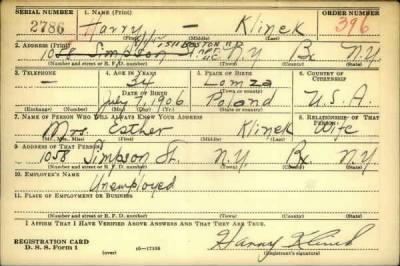 SERIAL NUMBER 1. NAME (Print) ORDER NUMBER
2786 Harry — Klinek 396
(First) (Middle) (Last)
2. ADDRESS (Print) 1511 BOSTON RD
1058 Simpson St. N.Y. Bx. N.Y.
(Number and street or R. F. D. number) (Town) (County) (State)
3. TELEPHONE 4. AGE IN YEARS 5. PLACE OF BIRTH 6. COUNTRY OF CITIZENSHIP
— 34 Lomza
DATE OF BIRTH (Town or county)
July 7, 1906 Poland U.S.A.
(Exchange) (Number) (Mo.) (Day) (Yr.) (State or country)
7. NAME OF PERSON WHO WILL ALWAYS KNOW YOUR ADDRESS 8. RELATIONSHIP OF THAT PERSON
Mrs. Esther Klinek Wife
(Mr., Mrs., Miss) (First) (Middle) (Last)
9. ADDRESS OF THAT PERSON
1058 Simpson St. N.Y. Bx. N.Y.
(Number and street or R. F. D. number) (Town) (County) (State)
10. EMPLOYER'S NAME
Unemployed
11. PLACE OF EMPLOYMENT OR BUSINESS
(Number and street or R. F. D. number) (Town) (County) (State)
I AFFIRM THAT I HAVE VERIFIED ABOVE ANSWERS AND THAT THEY ARE TRUE.
REGISTRATION CARD
D. S. S. Form 1 (over) 16—17105 Harry Klinek
(Registrant's signature)